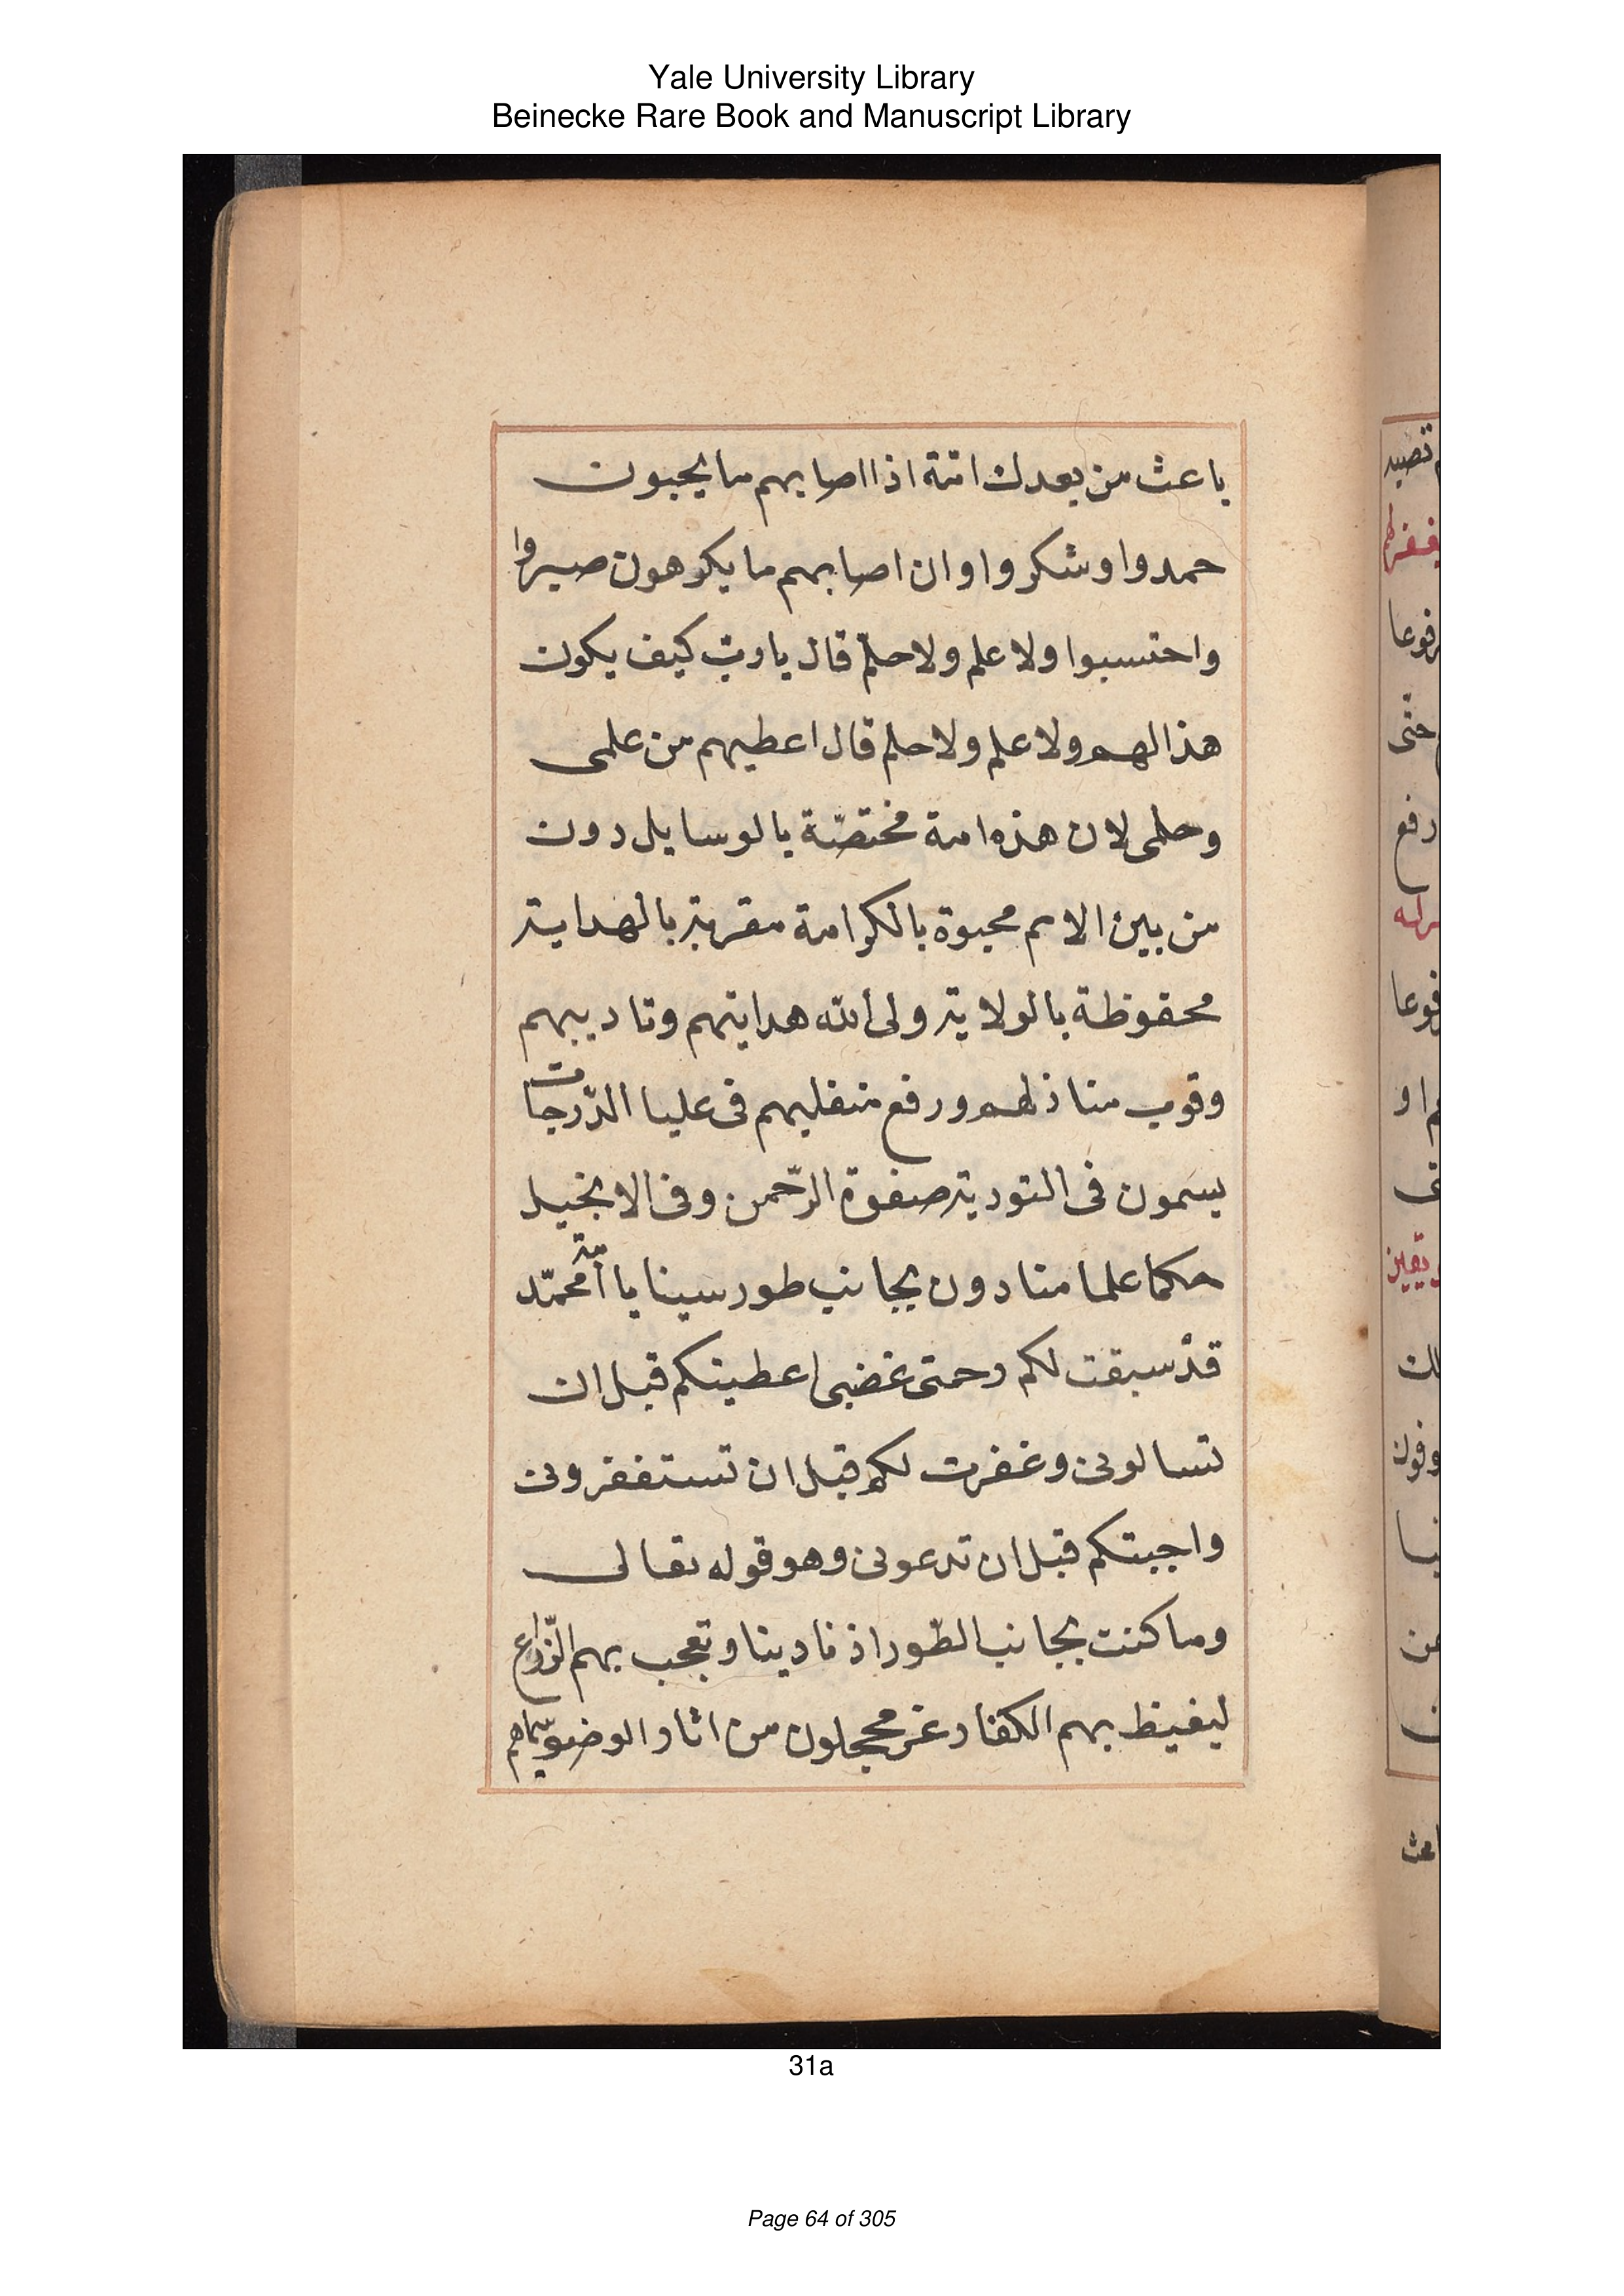 Yale University Library
Beinecke Rare Book and Manuscript Library
باعث من بعدك امّة اذا اصابهم ما يحبون
حمدوا وشكروا وان اصابهم ما يكرهون صبروا
واحتسبوا ولا علم ولا حلم قال يا ربّ كيف يكون
هذا لهم ولا علم ولا حلم قال اعطيهم من علمى
وحلمى لان هذه امة مختصّة بالوسايل دون
من بين الامم محبوة بالكرامة مقربة بالهداية
محفوظة بالولاية ولى الله هدايتهم وتاديبهم
وقرب منازلهم ورفع منقلبهم فى عليا الدّرجات
يسمون فى التورية صفوة الرّحمن وفى الانجيل
حكما علما منادون بجانب طور سينا يا امّة محمّد
قدْ سبقت لكم رحمتى غضبى اعطيتكم قبل ان
تسالونى وغفرت لكم قبل ان تستغفرونى
واجبتكم قبل ان تدعونى وهو قوله تعالى
وما كنت بجانب الطّور اذ نادينا وتعجب بهم الزّراع
ليغيظ بهم الكفار غر محجلون من اثار الوضو سيماهم
تصيد
رفوعا
حتّى
رفع
فوعا
او
باعث
31a
Page 64 of 305